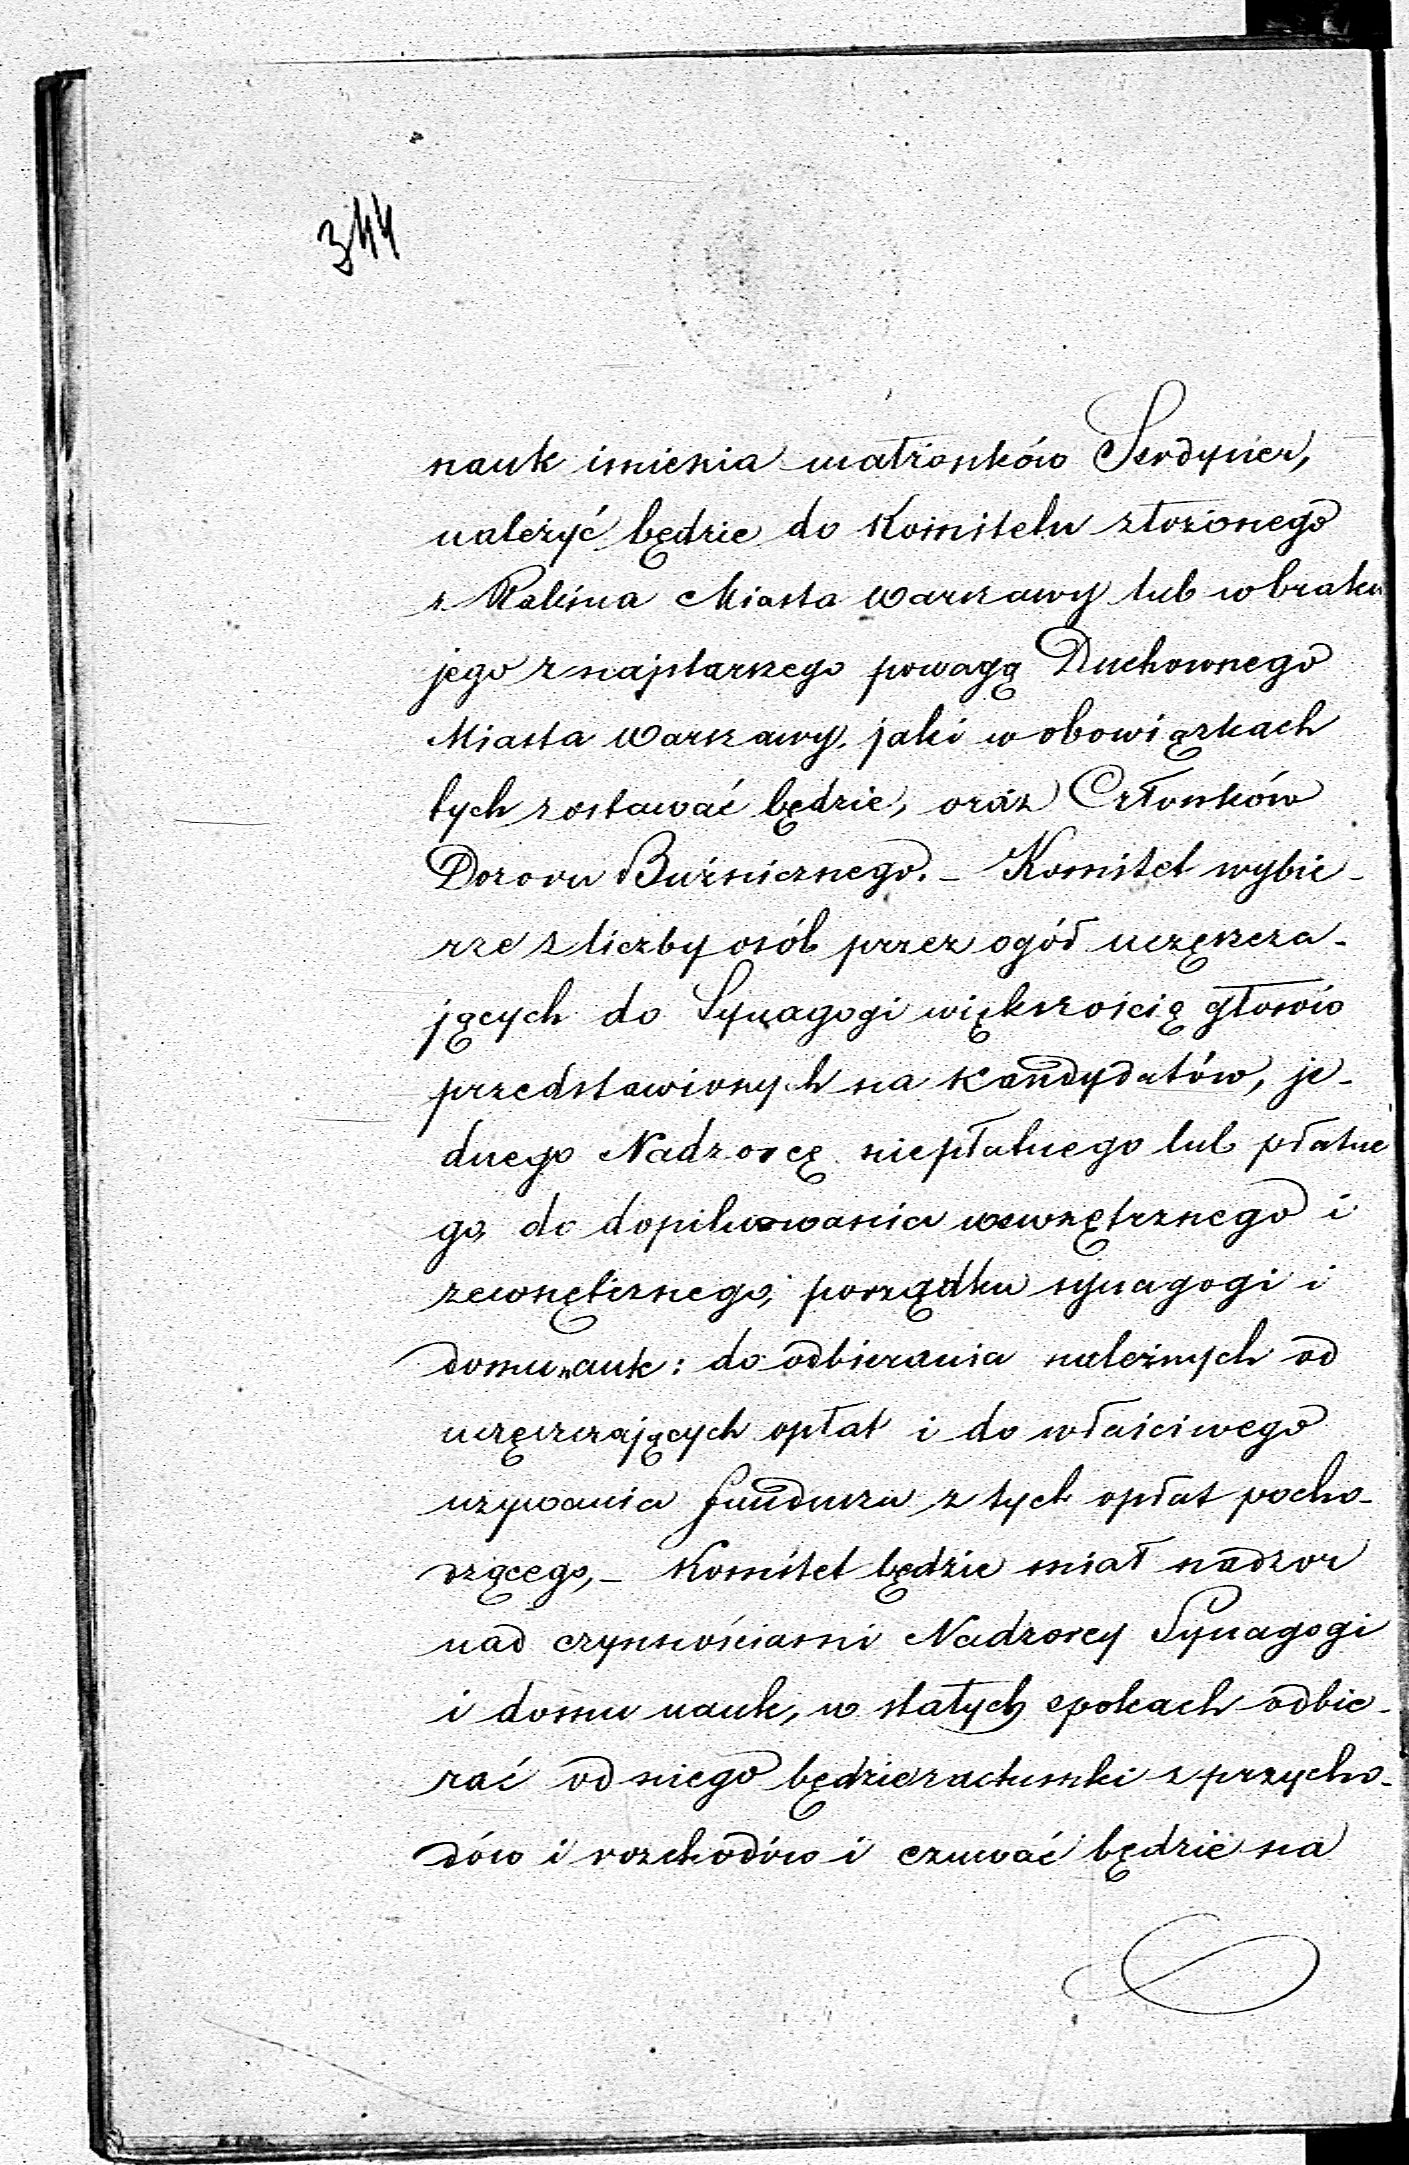 344
nauk imienia małżonków Serdyner,
należyć będzie do Komitetu złożonego
z Rabina Miasta Warszawy lub w braku
jego z najstarszego powagą Duchownego
Miasta Warszawy, jaki w obowiązkach
tych zostawać będzie, oraz Członków
Dozoru Bużniczego. – Komitet wybie-
rze z liczby osób przez ogół uczęszcza-
jących do Synagogi większością głosów
przedstawionych na kandydatów, je-
dnego Nadzorcę niepłatnego lub płatne
go, do dopilnowania wewnętrznego i
zewnętrznego, porządku synagogi i
domu nauk: do odbierania należnych od
uczęszczających opłat i do właściwego
używania funduszu z tych opłat pocho-
dzącego, – Komitet będzie miał nadzor
nad czynnościami Nadzorcy Synagogi
i domu nauk, w stałych epokach odbie-
rać od niego będzie rachunki z przycho-
dów i rozchodów i czuwać będzie na